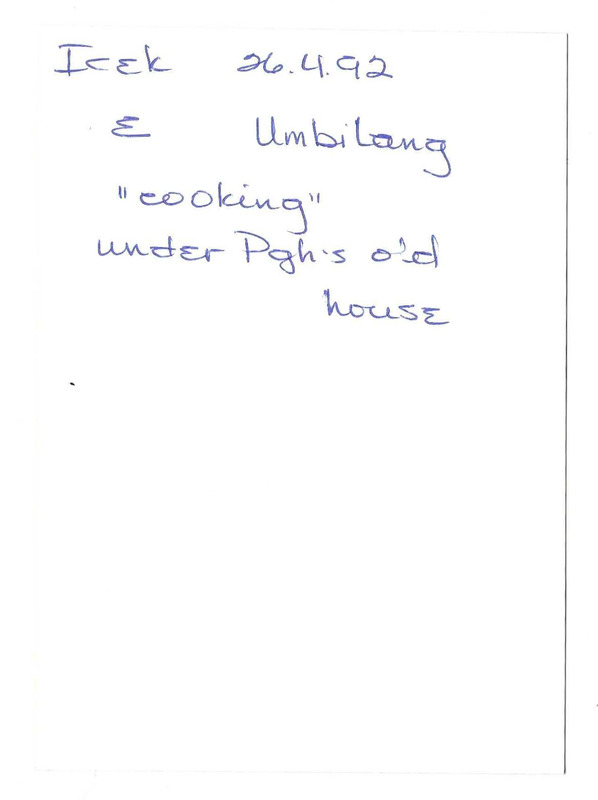 Icek 26.4.92
& Umbilang
"cooking"
under Pgh's old
house